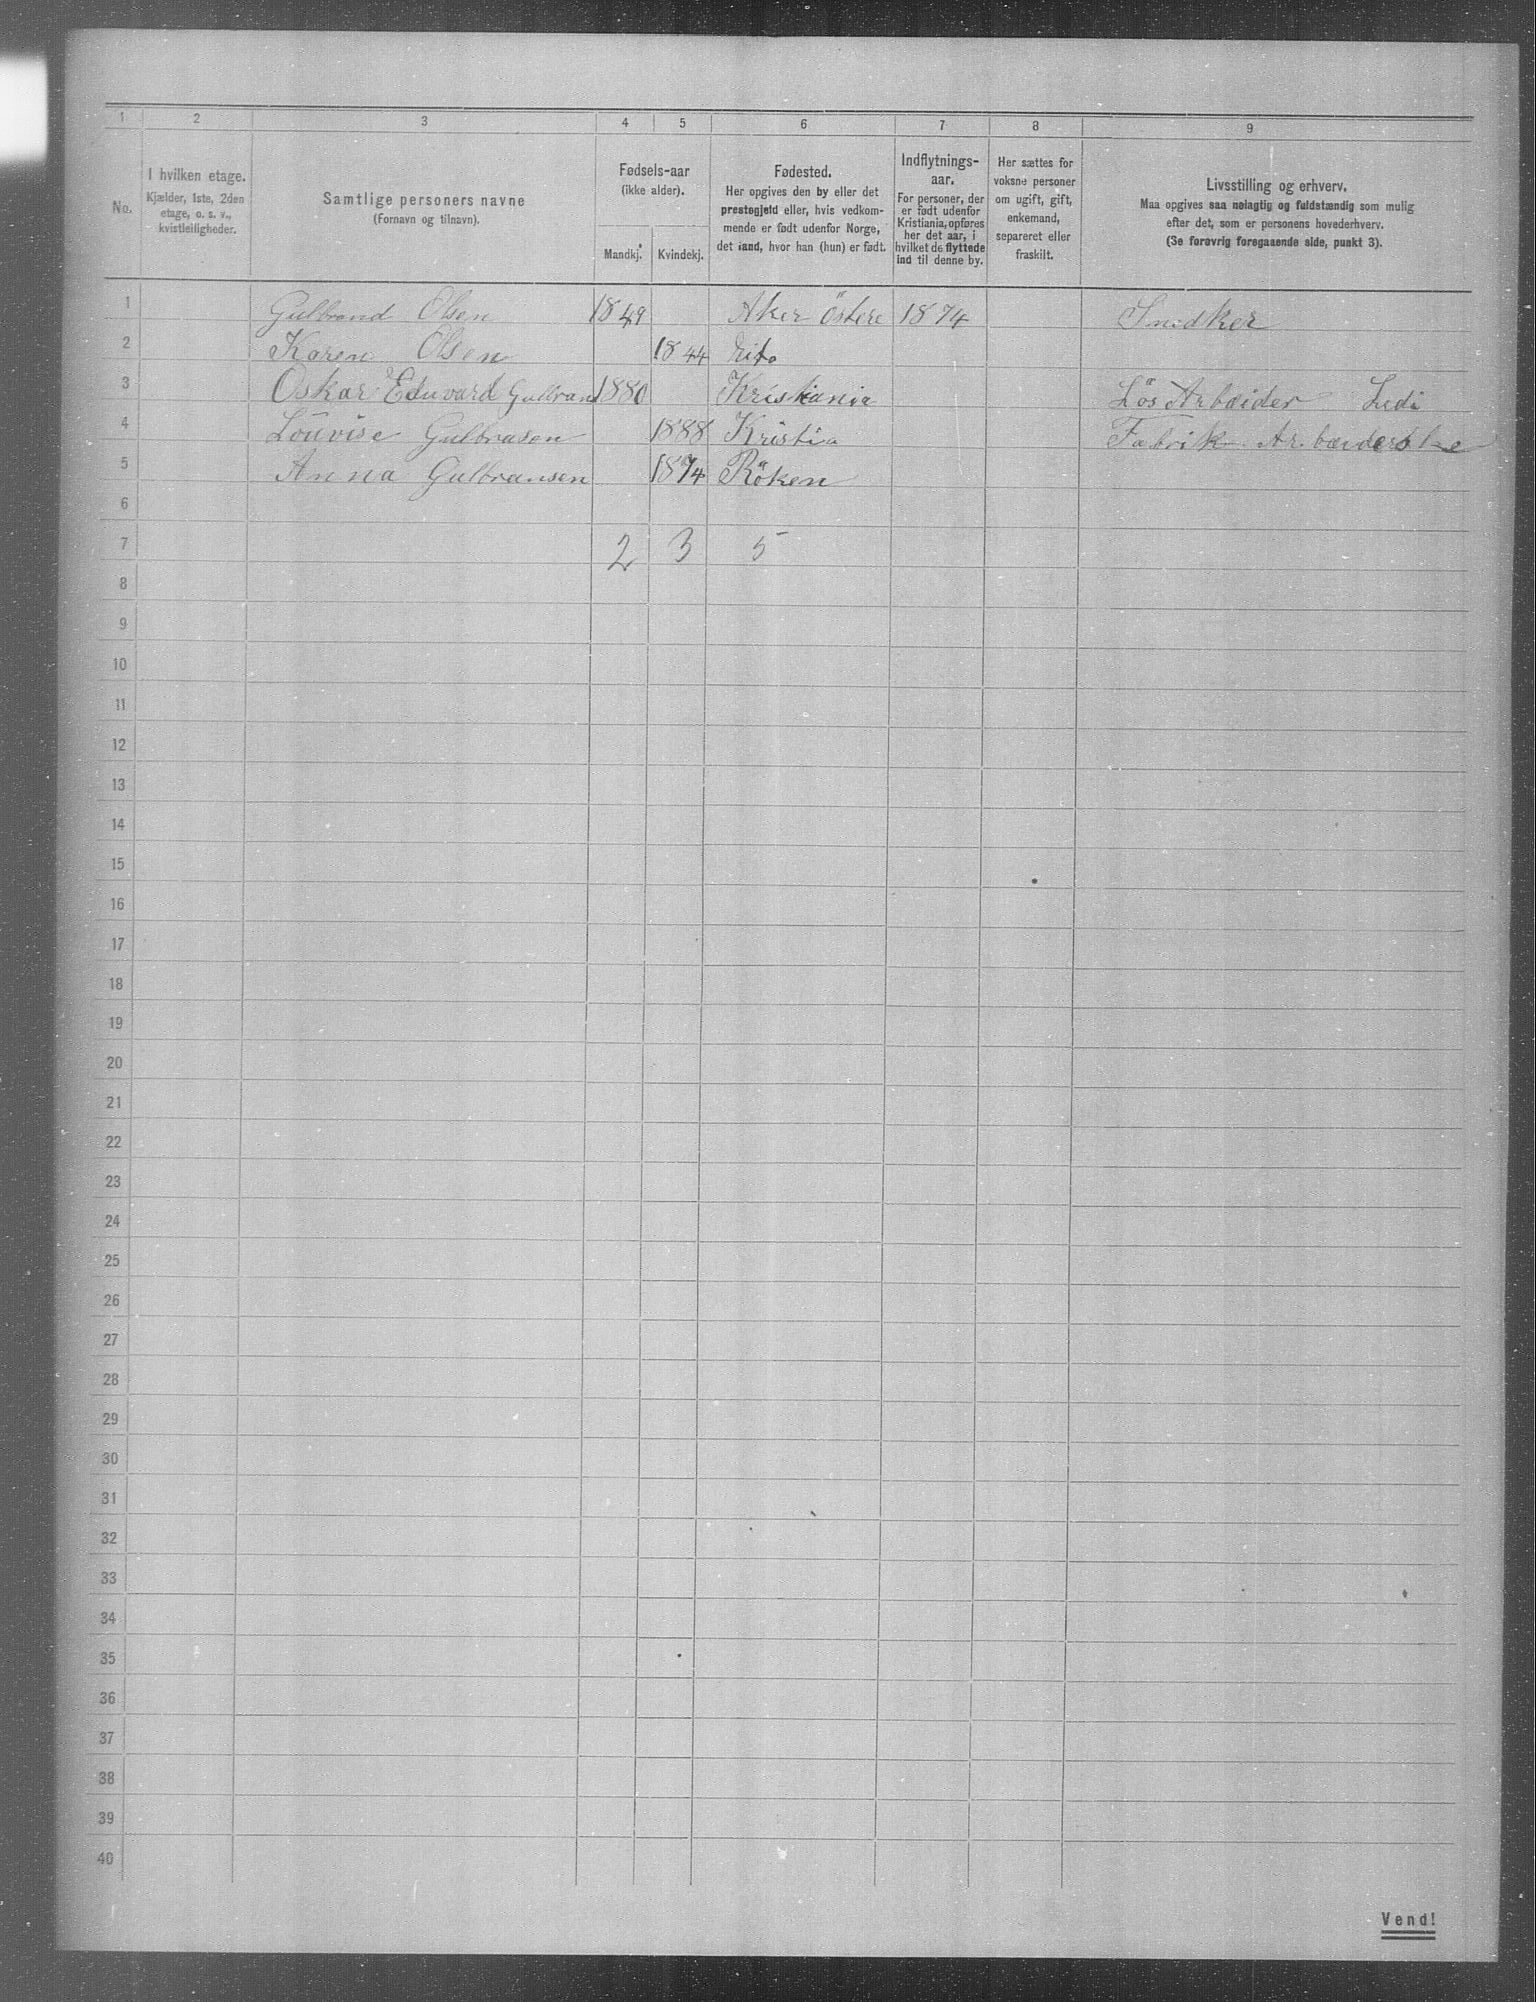 1 2 3 4 5 6 7 8 9
No.
I hvilken etage.
Kjælder, 1ste, 2den
etage, o. s. v.,
kvistleiligheder.
Samtlige personers navne
(Fornavn og tilnavn).
Fødsels-aar
(ikke alder).
Mandkj. Kvindekj.
Fødested.
Her opgives den by eller det
prestegjeld eller, hvis vedkom-
mende er født udenfor Norge,
det land, hvor han (hun) er født.
Indflytnings-
aar.
For personer, der
er født udenfor
Kristiania, opføres
her det aar, i
hvilket de flyttede
ind til denne by.
Her sættes for
voksne personer
om ugift, gift,
enkemand,
separeret eller
fraskilt.
Livsstilling og erhverv.
Maa opgives saa nøiagtig og fuldstændig som mulig
efter det, som er personens hovederhverv.
(Se forøvrig foregaaende side, punkt 3).
1 Gulbrand Olsen 1849 Aker Östere 1874 Snedker
2 Karen Olsen 1844 Dito
3 Oskar Eduvard Gulbran 1880 Kristiania Lös Arbeider Ledi
4 Louvise Gulbrasen 1888 Kristia Fabrik Arbæiderske
5 Anna Gulbransen 1874 Röken
6
7 2 3 5
8
9
10
11
12
13
14
15
16
17
18
19
20
21
22
23
24
25
26
27
28
29
30
31
32
33
34
35
36
37
38
39
40
Vend!